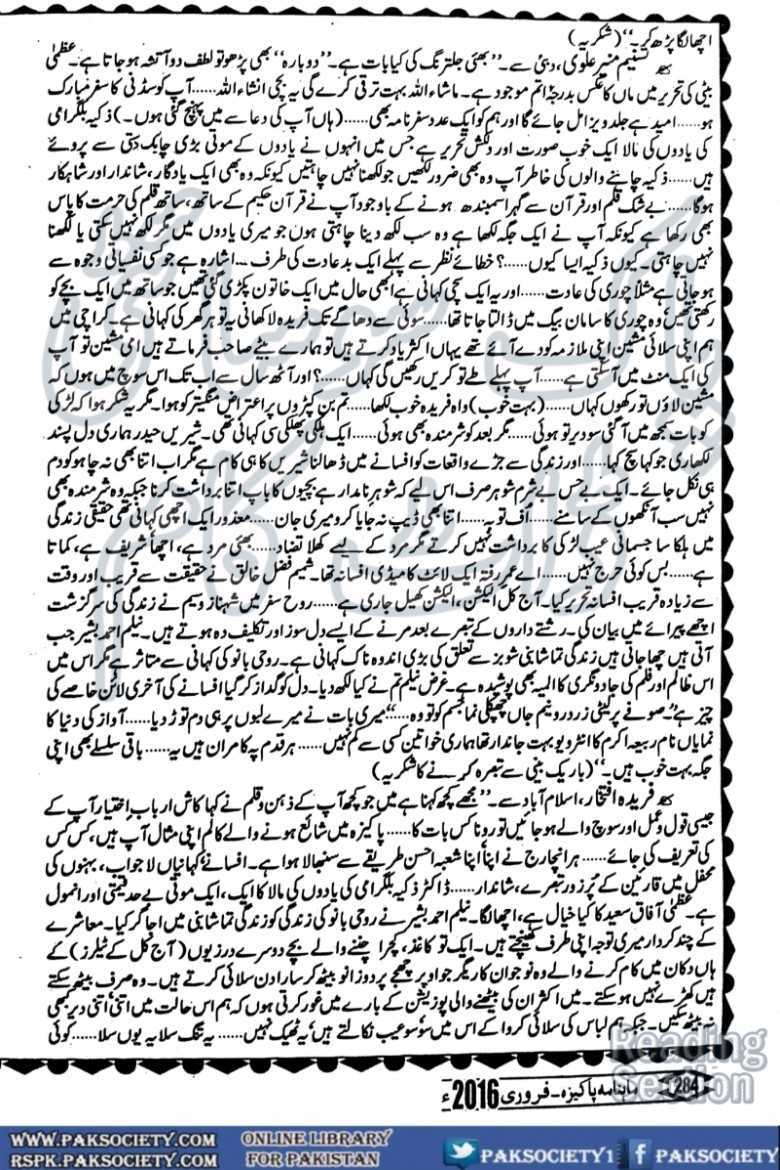 اچھا لگا پڑھ کر۔'' (شکریہ)
تسنیم منیر علوی، دبئی سے۔ ''بھئی جلترنگ کی کیا بات ہے۔ ''دوبارہ'' بھی پڑھو تو لطف دو آتشہ ہو جاتا ہے۔ عظمیٰ
بیٹی کی تحریر میں ماں کا عکس بدرجۂ اتم موجود ہے۔ ماشاء اللہ بہت ترقی کرے گی یہ بچی انشاء اللہ...... آپ کو سڈنی کا سفر مبارک
ہو...... امید ہے جلد ویزا مل جائے گا اور ہم کو ایک عدد سفر نامہ بھی...... (ہاں آپ کی دعا سے میں پہنچ گئی ہوں۔) ذکیہ بلگرامی
کی یادوں کی مالا ایک خوب صورت اور دلکش تحریر ہے جس میں انہوں نے یادوں کے موتی بڑی چابک دستی سے پروئے
ہیں...... ذکیہ چاہنے والوں کی خاطر آپ وہ بھی ضرور لکھیں جو لکھنا نہیں چاہتیں کیونکہ وہ بھی ایک یادگار، شاندار اور شاہکار
ہوگا...... بے شک قلم اور قرآن سے گہرا سمبندھ ہونے کے باوجود آپ نے قرآن حکیم کے ساتھ، ساتھ قلم کی حرمت کا پاس
بھی رکھا ہے کیونکہ آپ نے ایک جگہ لکھا ہے وہ سب لکھ دینا چاہتی ہوں جو میری یادوں میں مگر لکھ نہیں سکتی یا لکھنا
نہیں چاہتی۔ کیوں ذکیہ ایسا کیوں......؟ خطائے نظر سے پہلے ایک بد عادت کی طرف... اشارہ ہے جو کسی نفسیاتی وجوہ سے
ہو جاتی ہے مثلاً چوری کی عادت...... اور یہ ایک سچی کہانی ہے ابھی حال میں ایک خاتون پکڑی گئی تھیں جو ساتھ میں ایک بچے کو
رکھتی تھیں وہ چوری کا سامان بیگ میں ڈالتا جاتا تھا...... سوئی سے دھاگے تک فریدہ لاکھانی یہ تو ہر گھر کی کہانی ہے۔ کراچی میں
ہم اپنی سلائی مشین اپنی ملازمہ کو دے آئے تھے یہاں اکثر یاد کرتے ہیں تو ہمارے بیٹے صاحب فرماتے ہیں امی مشین تو آپ
کی ایک منٹ میں آسکتی ہے...... آپ پہلے طے تو کریں رکھیں گی کہاں......؟ اور آٹھ سال سے اب تک اس سوچ میں ہوں کہ
مشین لاؤں تو رکھوں کہاں...... (بہت خوب) واہ فریدہ خوب لکھا...... تم بن کپڑوں پر اعتراض منگیتر کو ہوا۔ مگر یہ شکر ہوا کہ لڑکی
کو بات سمجھ میں آگئی سو دیر تو ہوئی...... مگر بعد کو شرمندہ بھی ہوئی...... ایک ہلکی پھلکی سی کہانی تھی۔ شیریں حیدر ہماری دل پسند
لکھاری جو کہا سچ کہا...... اور زندگی سے جڑے واقعات کو افسانے میں ڈھالنا شیریں کا ہی کام ہے مگر اب اتنا بھی نہ چاہو کہ دم
ہی نکل جائے۔ ایک بے حس بے شرم شوہر صرف اس لیے کہ شوہر نامدار ہے بچیوں کا باپ اتنا برداشت کرنا جبکہ وہ شرمندہ بھی
نہیں سب آنکھوں کے سامنے...... اُف توبہ...... اتنا بھی ڈیپ نہ جایا کرو میری جان...... معذور ایک اچھی کہانی تھی حقیقی زندگی
میں ہلکا سا جسمانی عیب لڑکی کا برداشت نہیں کرتے مگر مرد کے لیے کھلا تضاد...... بھئی مرد ہے، اچھا شریف ہے، کماتا
ہے...... بس کوئی حرج نہیں...... اے عمر رفتہ ایک لائٹ کامیڈی افسانہ تھا۔ شمیم فضل خالق نے حقیقت سے قریب اور وقت
سے زیادہ قریب افسانہ تحریر کیا۔ آج کل الیکشن، الیکشن کھیل جاری ہے...... روح سفر میں شہناز وسیم نے زندگی کی سرگزشت
اچھے پیرائے میں بیان کی۔ رشتے داروں کے تبصرے بعد مرنے کے ایسے دل سوز اور تکلیف دہ ہوتے ہیں۔ نیلم احمد بشیر جب
آتی ہیں چھا جاتی ہیں زندگی تماشا بنی شوبز سے تعلق کی بڑی اندوہ ناک کہانی ہے۔ روحی بانو کی کہانی سے متاثر ہے مگر اس میں
اس ظالم اور فلم کی جادو نگری کا المیہ بھی پوشیدہ ہے۔ غرض نیلم تم نے کیا لکھ دیا۔ دل کو گداز کر گیا افسانے کی آخری لائن خاصے کی
چیز ہے۔ صوفے پر لیٹی زرد رو نیم جاں چھپکلی نما جسم کو تو وہ...... ''میری بات نے میرے لبوں پر ہی دم توڑ دیا...... آواز کی دنیا کا
نمایاں نام ربیعہ اکرم کا انٹرویو بہت جاندار تھا ہماری خواتین کسی سے کم نہیں...... ہر قدم پہ کامران ہیں یہ...... باقی سلسلے بھی اپنی
جگہ بہت خوب ہیں۔'' (باریک بینی سے تبصرہ کرنے کا شکریہ)
فریدہ افتخار، اسلام آباد سے۔ ''مجھے کچھ کہنا ہے میں جو کچھ آپ کے ذہن و قلم نے کہا کاش ارباب اختیار آپ کے
جیسی قول و عمل اور سوچ والے ہو جائیں تو رونا کس بات کا...... پاکیزہ میں شائع ہونے والے کالم اپنی مثال آپ ہیں، کس کس
کی تعریف کی جائے...... ہر انچارج نے اپنا اپنا شعبہ احسن طریقے سے سنبھالا ہوا ہے۔ افسانے کہانیاں لاجواب، بہنوں کی
محفل میں قارئین کے پُر زور تبصرے، شاندار...... ڈاکٹر ذکیہ بلگرامی کی یادوں کی مالا کا ایک، ایک موتی بے حد قیمتی اور انمول
ہے۔ عظمیٰ آفاق سعید کا کیا خیال ہے، اچھا لگا۔ نیلم احمد بشیر نے روحی بانو کی زندگی کو زندگی تماشا بنی میں اجاگر کیا۔ معاشرے
کے چند کردار میری توجہ اپنی طرف کھینچتے ہیں۔ ایک تو کاغذ، کچرا چننے والے بچے دوسرے درزیوں (آج کل کے ٹیلرز) کے
ہاں دکان میں کام کرنے والے وہ نوجوان کاریگر جو اوپر چھجے پر دو زانو بیٹھ کر سارا دن سلائی کرتے ہیں۔ وہ صرف بیٹھ سکتے
ہیں کھڑے نہیں ہو سکتے۔ میں اکثر ان کی بیٹھنے والی پوزیشن کے بارے میں غور کرتی ہوں کہ ہم اس حالت میں اتنی، اتنی دیر بھی
نہ بیٹھ سکیں۔ جبکہ ہم لباس کی سلائی کروا کے اس میں سو، سو عیب نکالتے ہیں یہ ٹھیک نہیں...... یہ تنگ سلا یہ یوں سلا...... کوئی
284 ماہنامہ پاکیزہ۔ فروری 2016ء
Reading
Section
پاک سوسائٹی
ڈاٹ کام
WWW.PAKSOCIETY.COM ONLINE LIBRARY PAKSOCIETY1 PAKSOCIETY
RSPK.PAKSOCIETY.COM FOR PAKISTAN